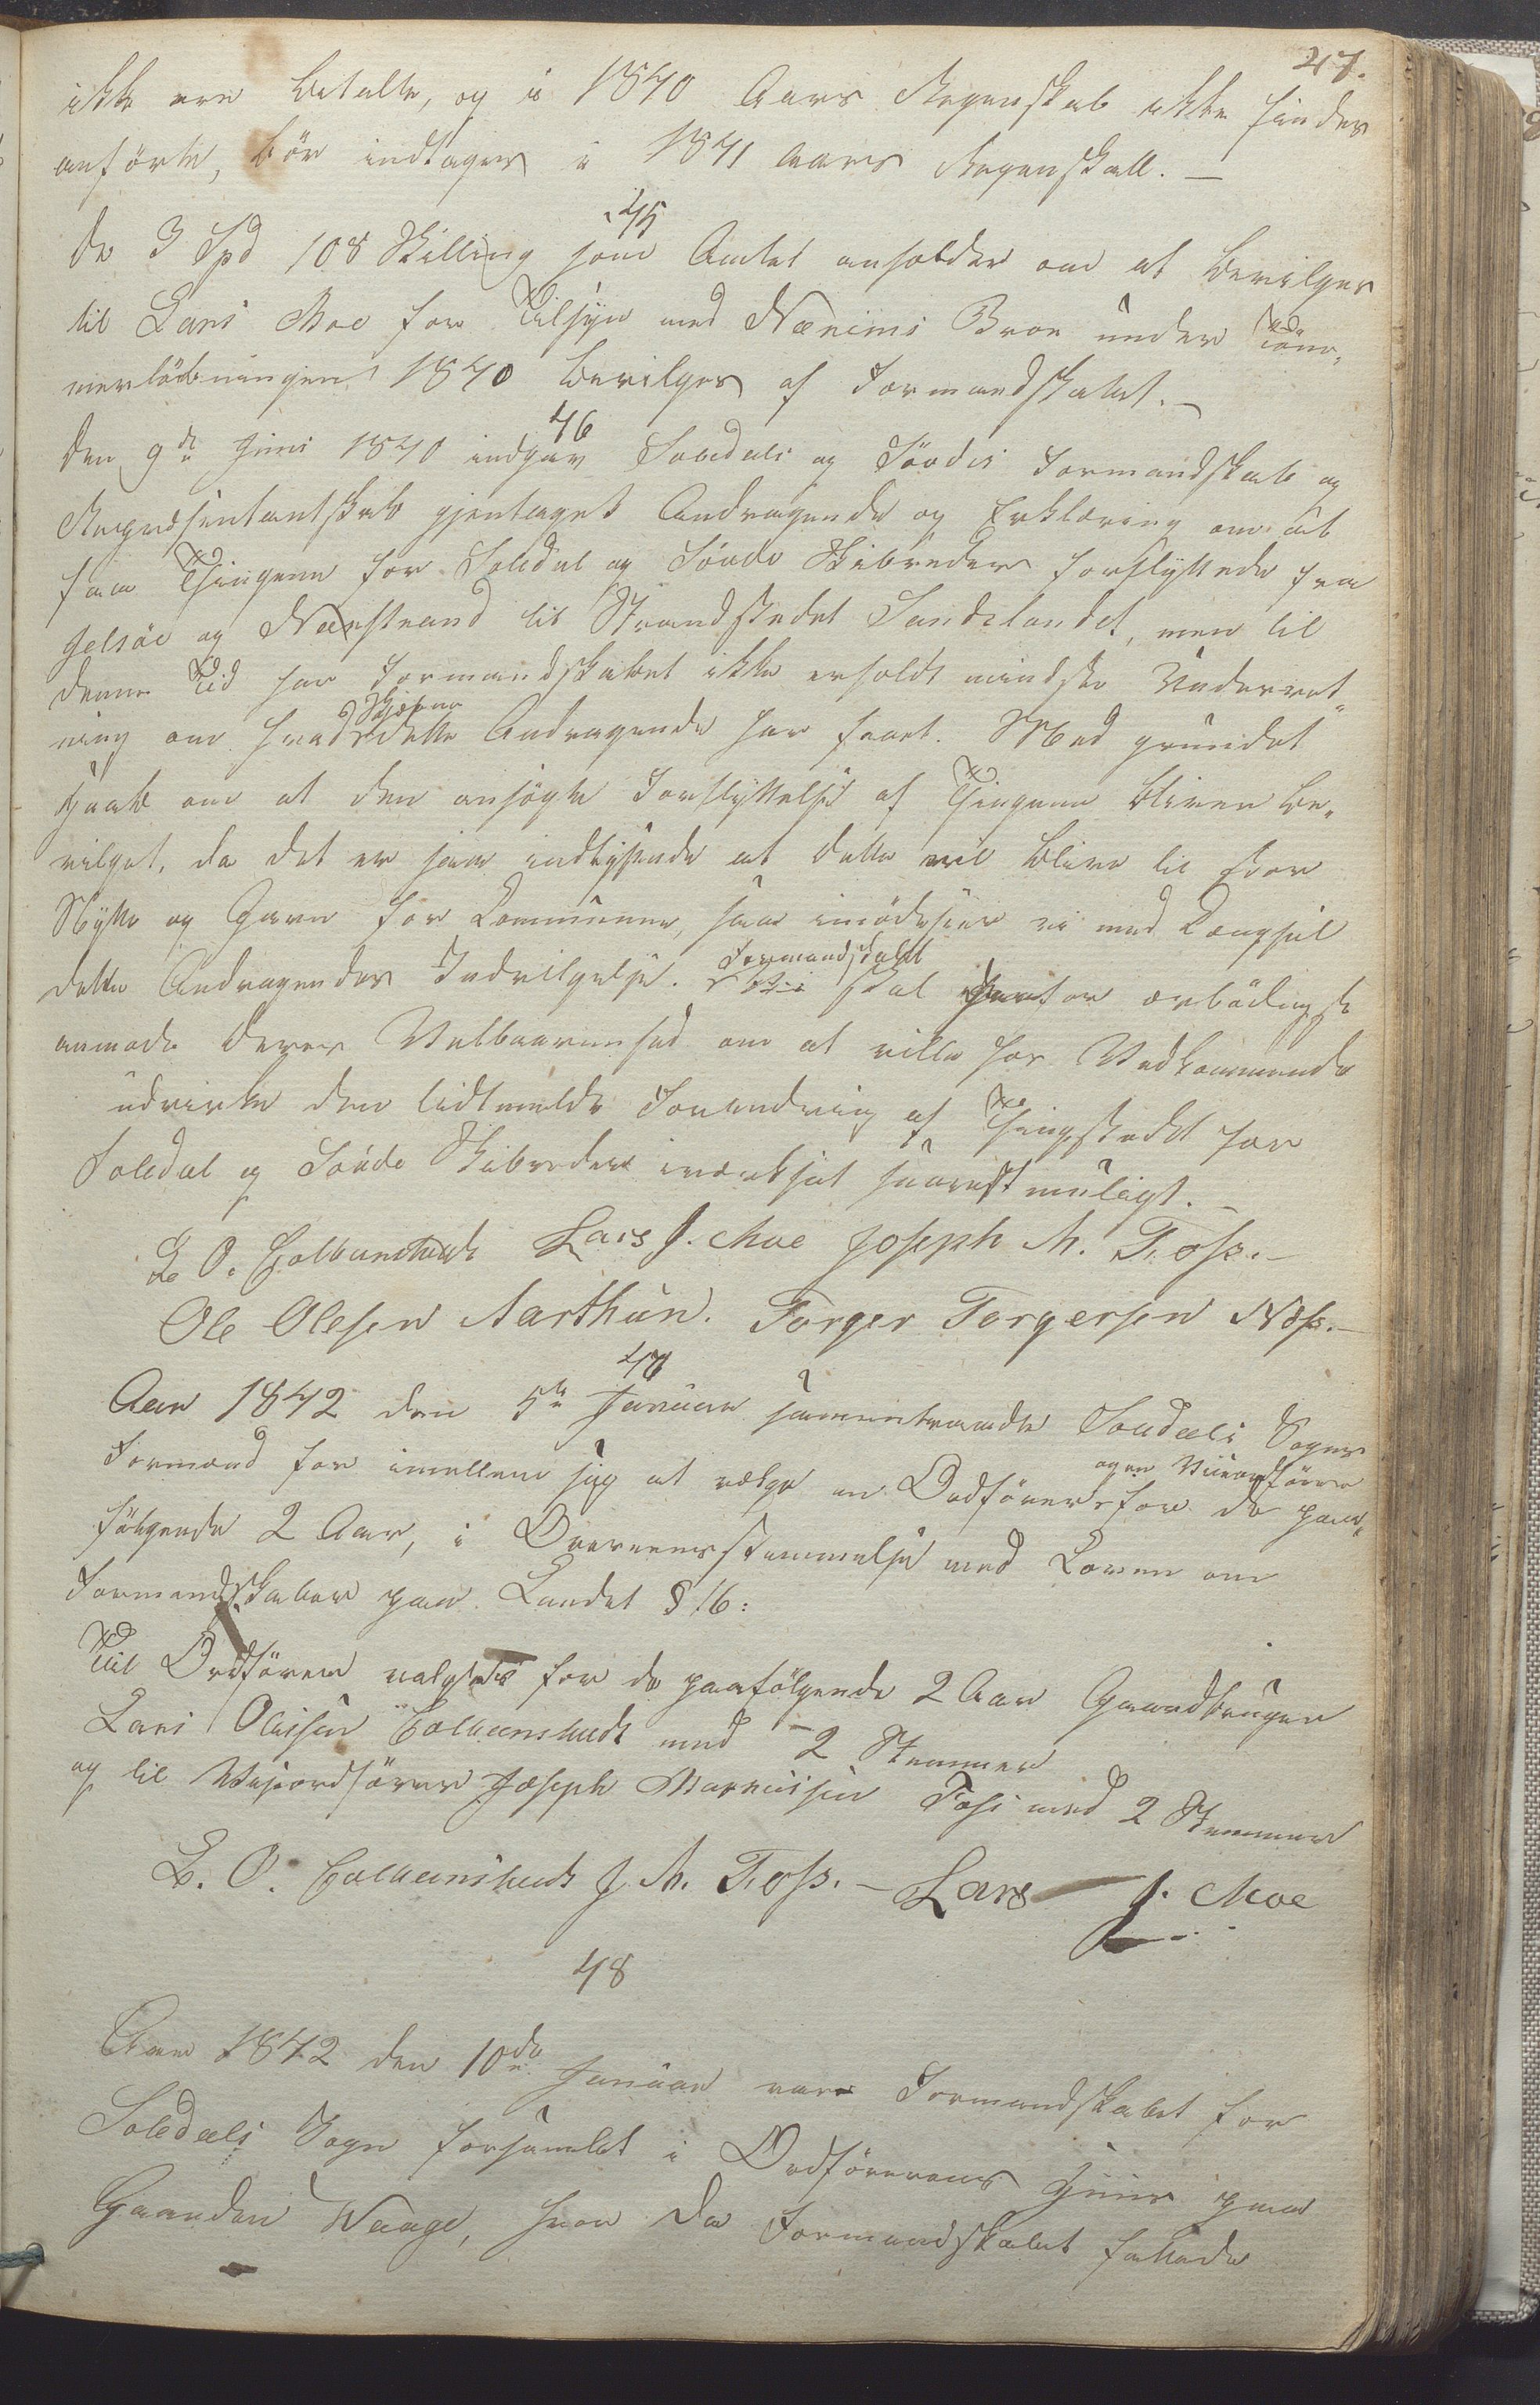 47.
ikke ere betalte, og i 1840 Aars Regenskab ikke findes
anförte, bör indtages i 1841 Aars Regenskab. —
45
De 3 Spd 108 Skilling som Amtet anholder om at bevilges
til Lars Moe for Tilsyn med Næsims Broe under Töm¬
merlöbningen 1840 bevilges af Formandskabet. —
46
Den 9de Juni 1840 indgav Souldals og Sövdes Formandskab og
Repræsentantskab gjentaget Andragende og Erklæring om at
faae Thingene for Soledal og Sövde Skibreder forflyttede fra
Jelsöe og Nærstrand til Strandstedet Sandslandet, men til
denne Tid har Formandskabet ikke erholdt mindste Underret¬
ning om hvad Skjæbne dette Andragende har faaet. Med grundet
Haab om at den ansögte Forflyttelse af Thingene bliver be¬
vilget, da det er saa indlysende at dette vil blive til stor
Nytte og Gavn for Communen, saa imödeseer vi med Længsel
dette Andragendes Indvilgelse. Formandskabet skal derfor ærbödigst
anmode Deres Velbaarenhed om at ville hos Vedkommende
udvirke den lidtmeldte Forandring af Thingstedet for
Soledal og Sövde Skibreder iværksat snarest muligt. —
L. O. Colbeinstvedt Lars J. Moe Joseph M. Foss. —
Ole Olesen Aarthun. Torger Torgersen Næss. —
47
Aar 1842 den 5te Januar sammentraadte Souldals Sogns
Formænd for imellem sig at vælge en Ordförer og en Viceordförer for de paa¬
fölgende 2 Aar, i Overeensstemmelse med Loven om
Formandskaber paa Landet § 16:
Til Ordförer valgtes for de paafölgende 2 Aar Gaardbruger
Lars Olesen Colbeinstvedt med 2 Stemmer
og til Viseordförer Joseph Marcussen Foss med 2 Stemmer
L. O. Colbeinstvedt J. M. Foss. — Lars J. Moe
48
Aar 1842 den 10de Januar var Formandskabet for
Soledals Sogn forsamlet i Ordförerens Huus paa
Gaarden Waage, hvor da Formandskabet fattede